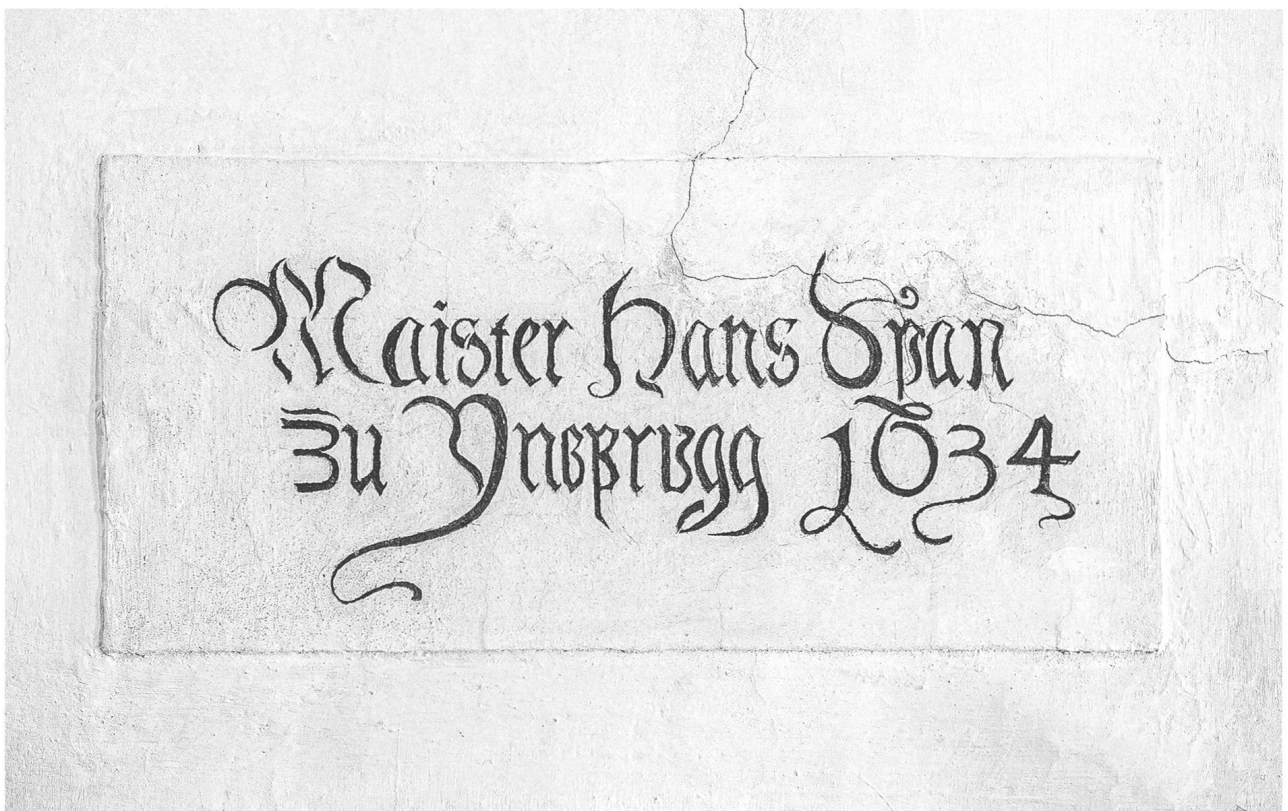 Maister Hans Span
zu Ynsprvgg 1634